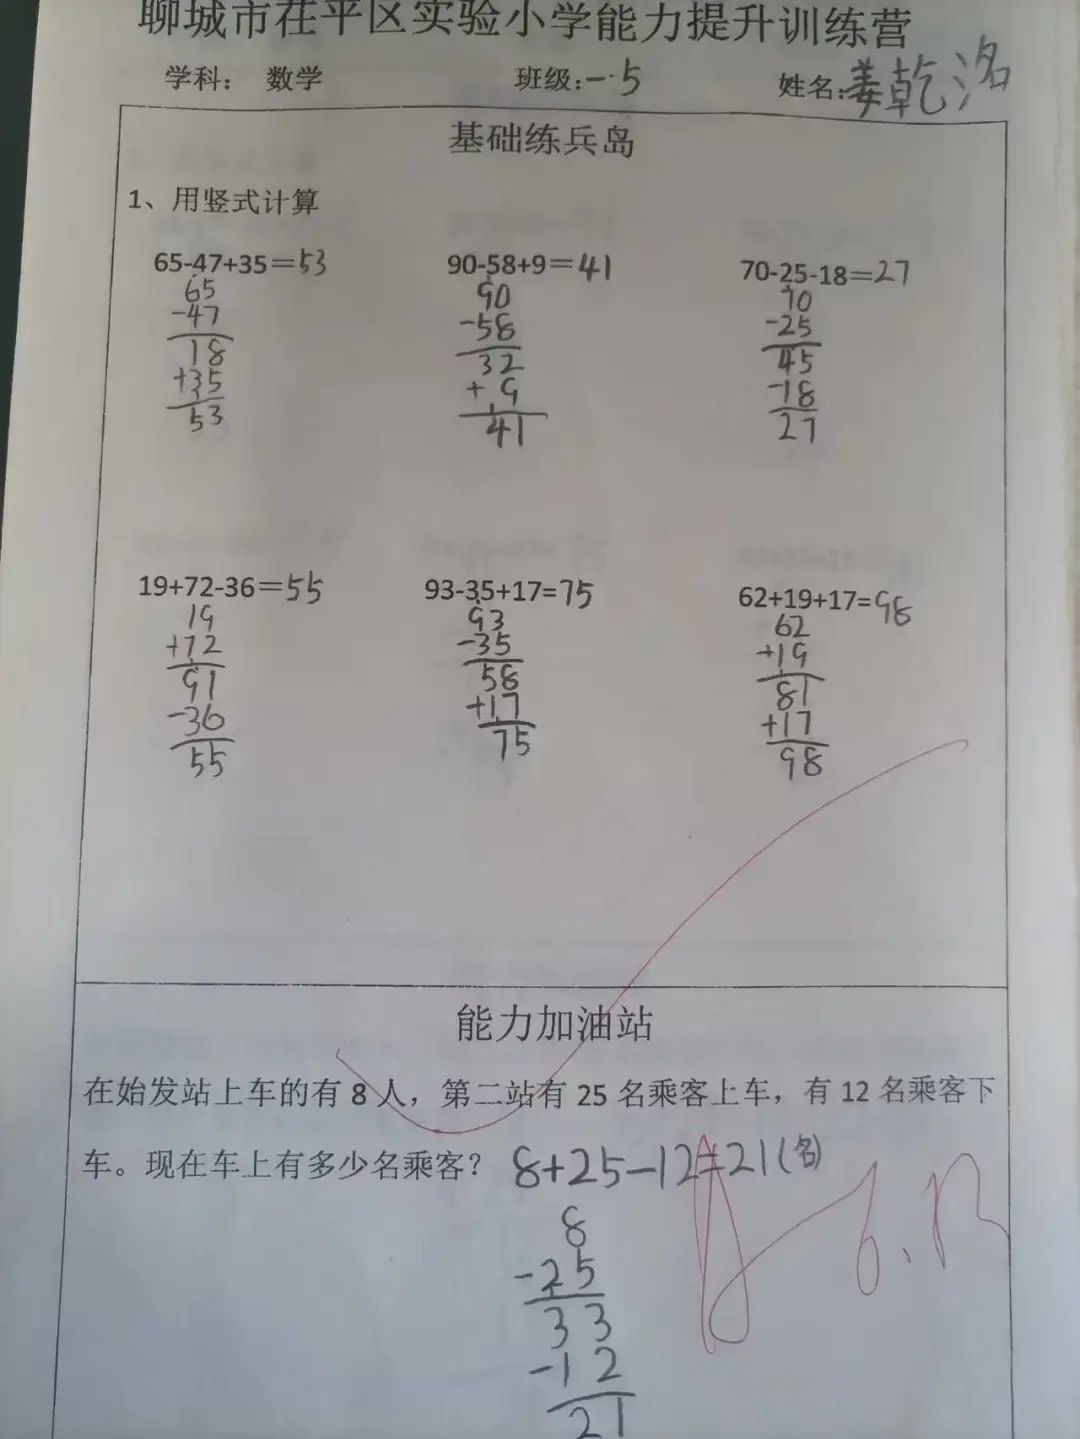 聊城市茌平区实验小学能力提升训练营
学科： 数学 班级:一.5 姓名:姜乾洺
基础练兵岛
1、用竖式计算
65-47+35=53 90-58+9=41 70-25-18=27
65 90 70
-47 -58 -25
18 32 45
+35 +9 -18
53 41 27
19+72-36=55 93-35+17=75 62+19+17=98
19 93 62
+72 -35 +19
91 58 81
-36 +17 +17
55 75 98
能力加油站
在始发站上车的有 8 人，第二站有 25 名乘客上车，有 12 名乘客下
车。现在车上有多少名乘客？ 8+25-12=21(名)
8
-25
33
-12
21
6.13